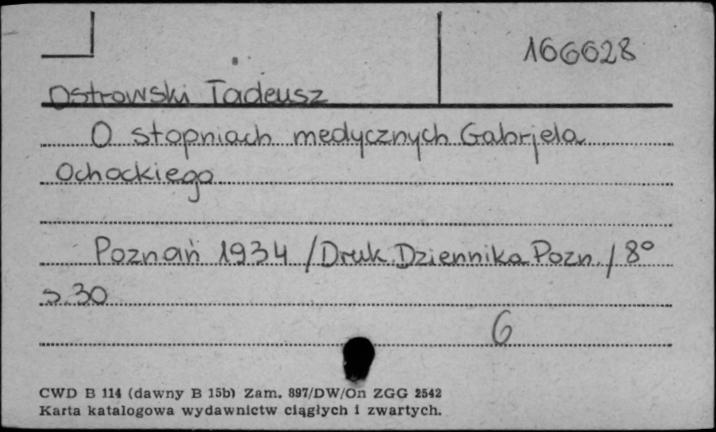 166628
Ostrowski Tadeusz
O stopniach medycznych Gabrjela
Ochockiego
Poznań 1934 /Druk Dziennika Pozn./ 8°
s. 30
6
CWD B 114 (dawny B 15b) Zam. 897/DW/On ZGG 2542
Karta katalogowa wydawnictw ciągłych i zwartych.